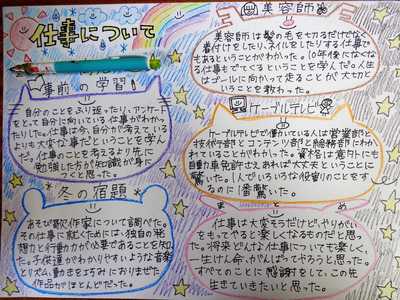 仕事について
美容師
美容師は髪の毛を切るだけでなく
着付けをしたり、ネイルをしたりする仕事で
もあるということがわかった。10年後になくな
る仕事もでてくるということを学んだ。人生
はゴールに向かって走ることが大切と
いうことを教わった。
事前の学習
自分のことをふり返ったり、アンケート
をとって自分に向いている仕事がわかっ
たりした。仕事は今、自分が考えている
よりも大変な事だということを学ん
だ。仕事のことを考るより先に
勉強した方が知識が身に
つくと思った。
ケーブルテレビ
ケーブルテレビで働いている人は営業部と
技術部とコンテンツ部と総務部にわか
れていることがわかった。資格は意外にも
自動車免許さえあれば大丈夫ということに
驚いた。1人でいろいろな役割のことをす
るのに1番驚いた。
冬の宿題
あそび歌作家について調べた。
その仕事に就くためには、独自の発
想力と行動力が必要であることを知っ
た。子供達がわかりやすいような音楽
とリズム、動きをまちみにおりませた
作品がほとんどだった。
まとめ
仕事は大変そうだけど、やりがい
をもってやると楽しくなるものだと思っ
た。将来どんな仕事についても楽しく、
一生けん命、がんばってやろうと思った。
すべてのことに感謝をして、この先
生きていきたいと思った。